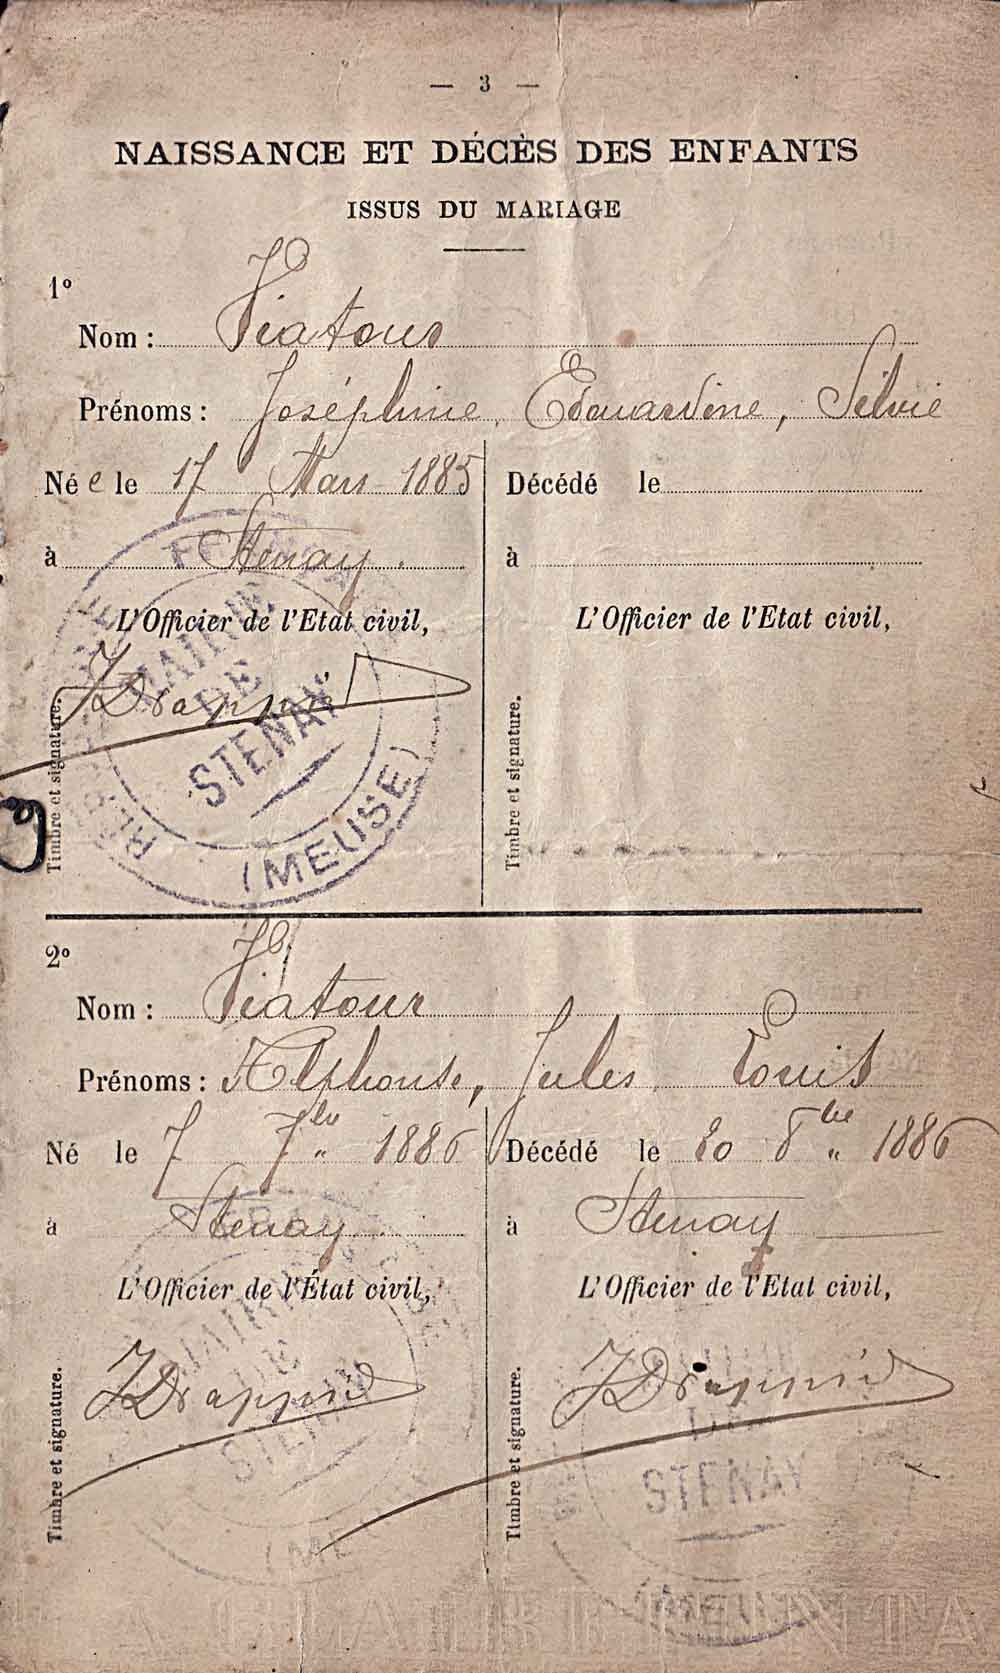 — 3 —
NAISSANCE ET DÉCÈS DES ENFANTS
ISSUS DU MARIAGE
1º
Nom : Viatour
Prénoms : Joséphine, Edouardine, Silvie
Née le 17 Mars 1885
Décédé le
à Stenay.
à
L'Officier de l'Etat civil,
L'Officier de l'Etat civil,
MAIRIE
DE
STENAY
(MEUSE)
Timbre et signature.
Timbre et signature.
2º
Nom : Viatour
Prénoms : Alphonse, Jules Louis
Né le 7 7bre 1886
Décédé le 20 8bre 1886
à Stenay
à Stenay
L'Officier de l'État civil,
L'Officier de l'Etat civil,
MAIRIE
DE
STENAY
DE
STENAY
Timbre et signature.
Timbre et signature.